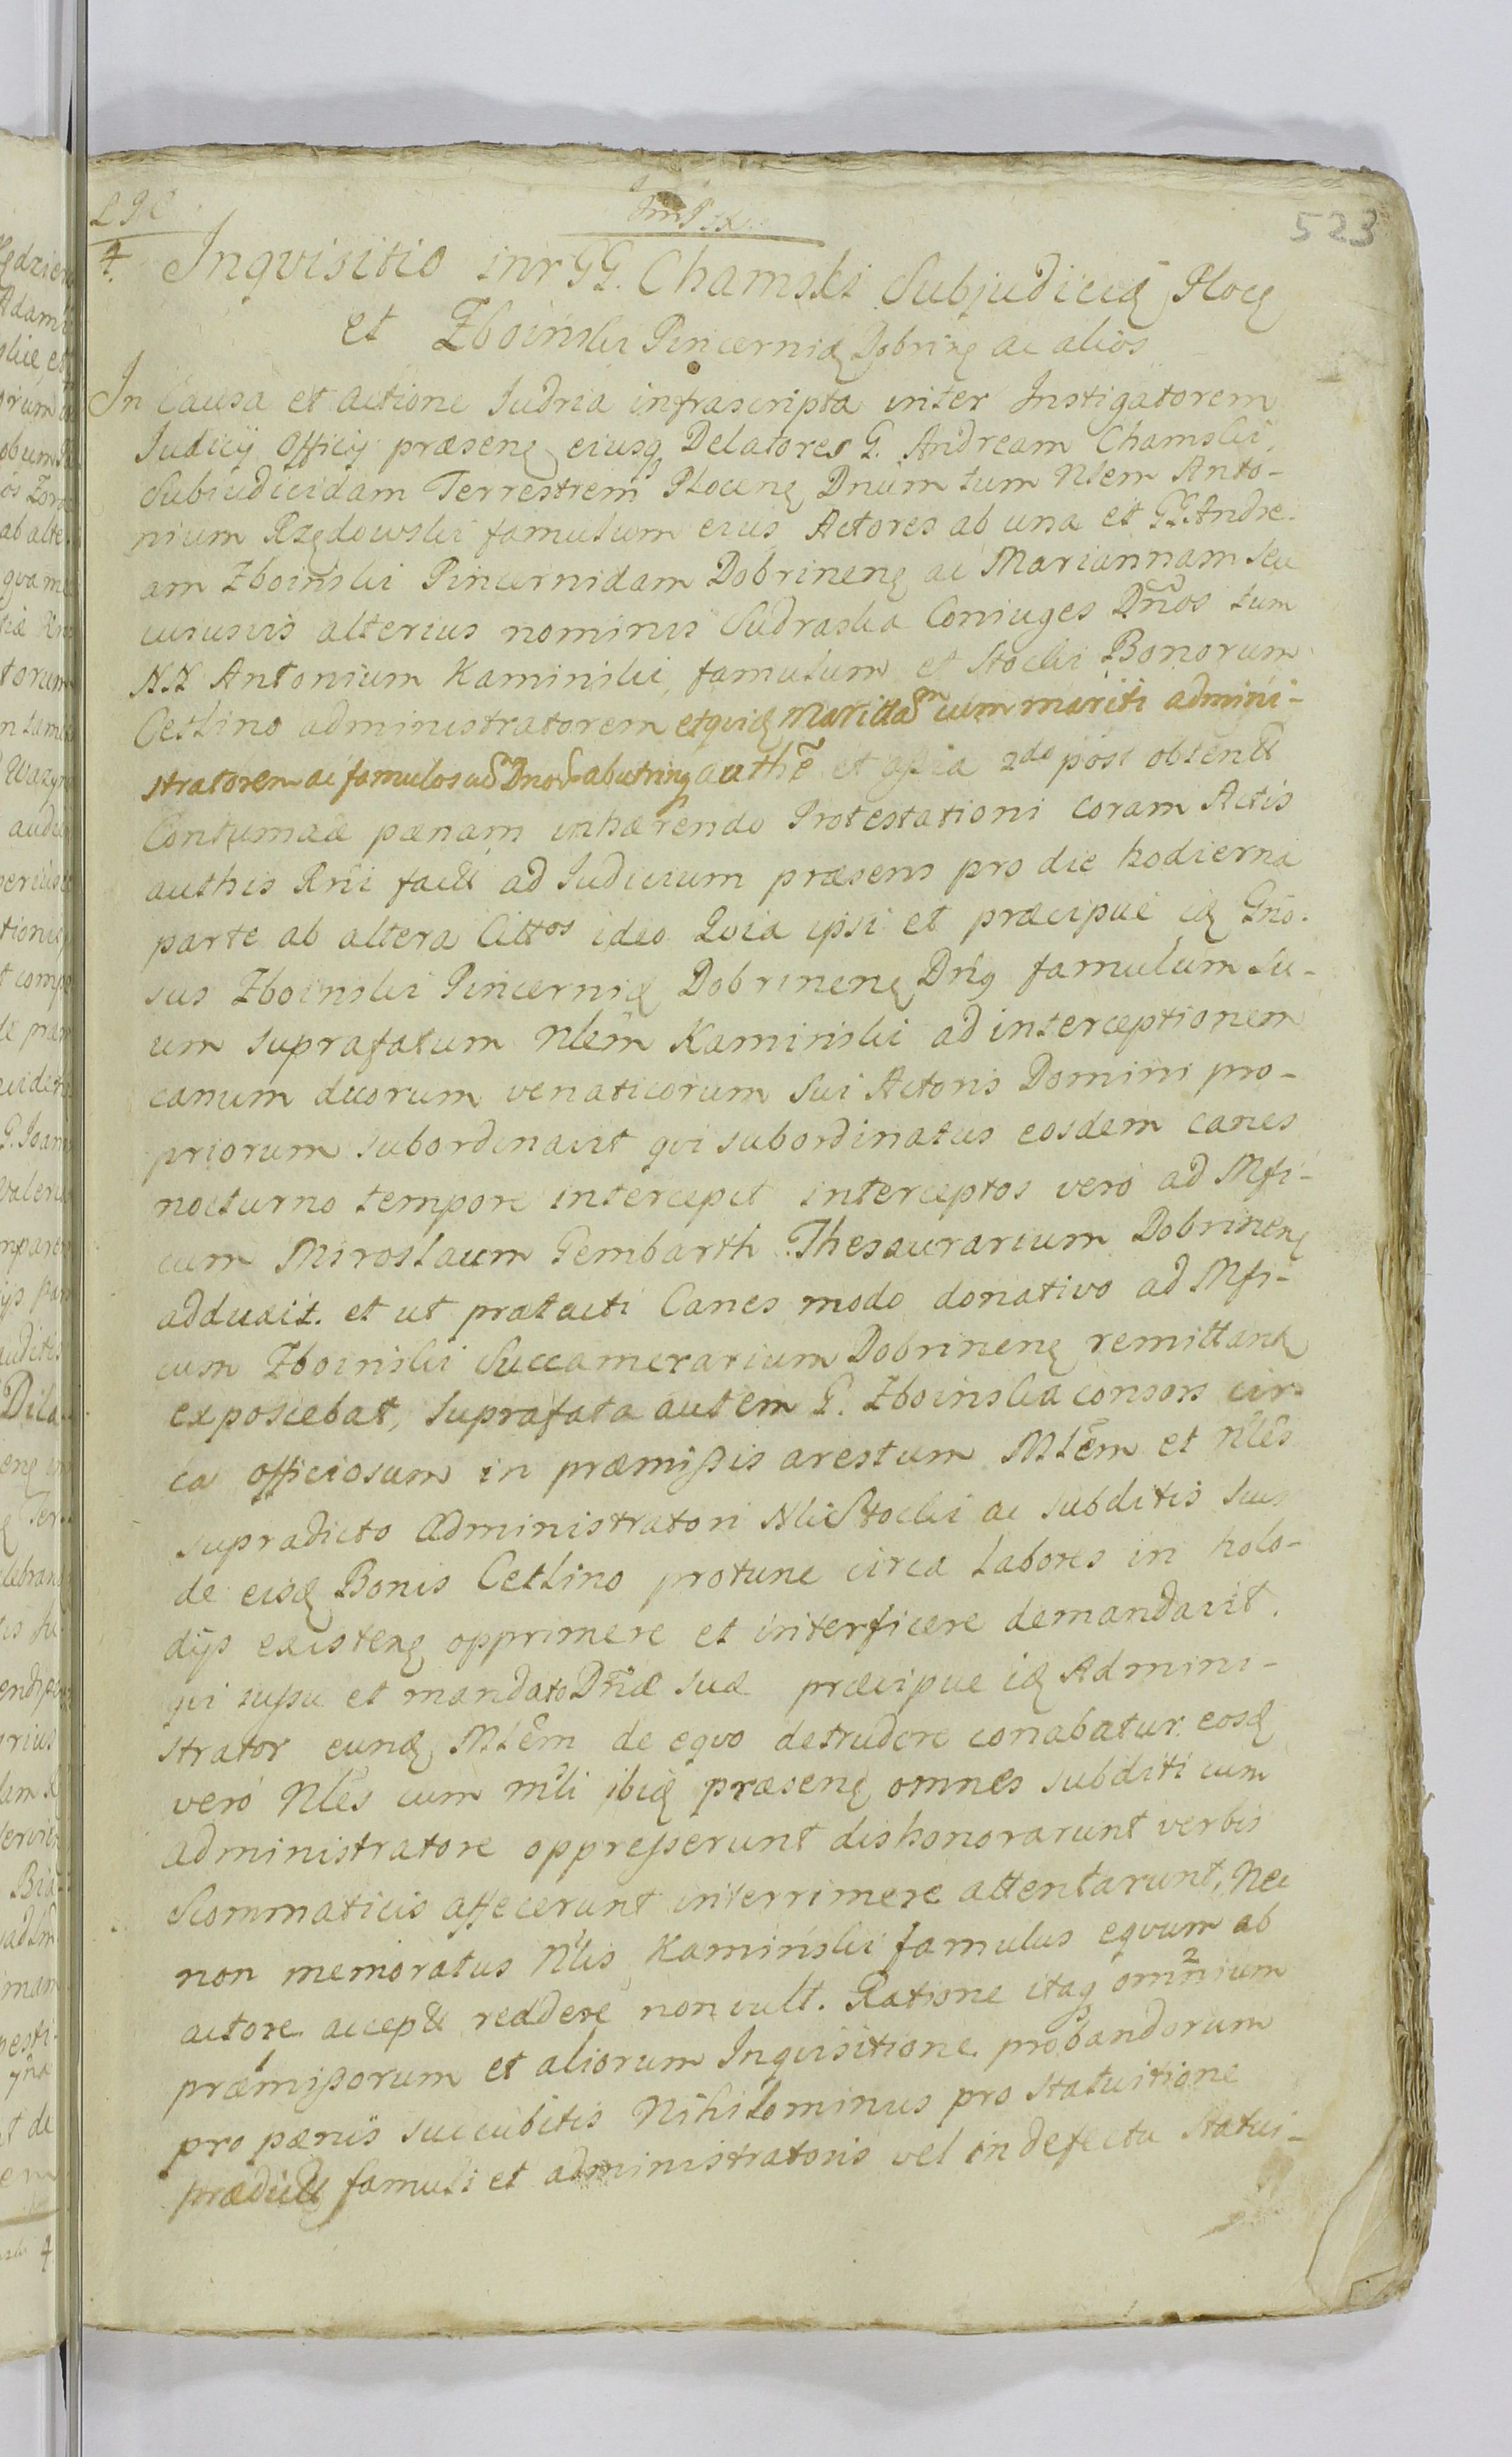 523
4. Inqvisitio inr GG. Chamski Subjudicid Ploce
et Zboinski Pincernid Dobrine ac alios
In Causa et actione Iudria infrascripta inter Instigatorem
Iudicij Officij præsene eiusq Delatores G. Andream Chamski
Subiudicidam Terrestrem Plocene Dnum tum Nlem Anto-
nium Rzędowski famulum eius Actores ab una et GG. Andre-
am Zboinski Pincernidam Dobrinene ac Mariannam seu
cuiusvis alterius nominis Sudraska Coniuges Dnos tum
NN Antonium Kaminski famulum et Stocki Bonorum
Cetlino administratorem etqvid Marittam cum mariti admini-
stratorem ac famulos Dnos ab utrinq authe et 2do post obtent
Contumaciæ pænam inhærendo Protestationi coram Actis
authis Rrii fact ad Iudicium præsens pro die hodierna
parte ab altera Cittos ideo Qvia ipsi et præcipuè id Gno-
sus Zboinski Pincernid Dobrinene Dng famulum su-
um suprafatum Nlem Kaminski ad interceptionem
canum duorum venaticorum sui Actoris Domini pro-
priorum subordinavit qvi subordinatus eosdem canes
nocturno tempore intercepit interceptos verò ad Mfi-
cum Miroslaum Gembarth Thesaurarium Dobrinene
adduxit. et ut prætacti Canes modo donativo ad Mfi-
cum Zboinski Succamerarium Dobrinene remittant
exposcebat, suprafata autem G. Zboinska consors cir-
ca officiosum in præmissis arestum Mlem et Nles
supradicto Administratori Nli Stocki ac subditis suis
de eisd Bonis Cetlino protunc circa labores in holo-
dijs existene opprimere et interficere demandavit.
qvi iussu et mandato Dnæ suæ præcipue id Admini-
strator eund Mlem de eqvo detrudere conabatur. eosd
verò Nles cum mli ibid præsene omnes subditi cum
administratore oppresserunt dishonorarunt verbis
scommaticis affecerunt interrimere attentarunt, Nec
non memoratus Nlis Kaminski famulus eqvum ab
actore accept reddere non vult. Ratione itaq omnium
præmissorum et aliorum Inqvisitione probandorum
pro pænis succubitis Nihilominus pro statuitione
prædict famuli et administratoris vel in defectu statui-